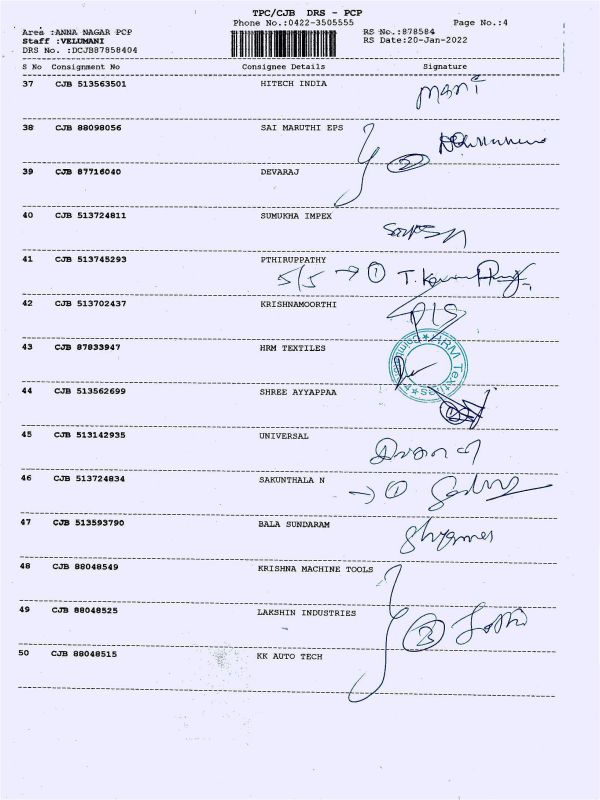 TPC/CJB DRS - PCP
Phone No.:0422-3505555 Page No.:4
Area :ANNA NAGAR PCP RS No.:878584
Staff :VELUMANI RS Date:20-Jan-2022
DRS No. :DCJB87858404
S No Consignment No Consignee Details Signature
37 CJB 513563501 HITECH INDIA mani
38 CJB 88098056 SAI MARUTHI EPS
2
39 CJB 87716040 DEVARAJ
40 CJB 513724811 SUMUKHA IMPEX
41 CJB 513745293 PTHIRUPPATHY
5/5 → 1
42 CJB 513702437 KRISHNAMOORTHI
43 CJB 87833947 HRM TEXTILES
44 CJB 513562699 SHREE AYYAPPAA
45 CJB 513142935 UNIVERSAL
46 CJB 513724834 SAKUNTHALA N
→ 1
47 CJB 513593790 BALA SUNDARAM
48 CJB 88048549 KRISHNA MACHINE TOOLS
49 CJB 88048525 LAKSHIN INDUSTRIES
3
50 CJB 88048515 KK AUTO TECH